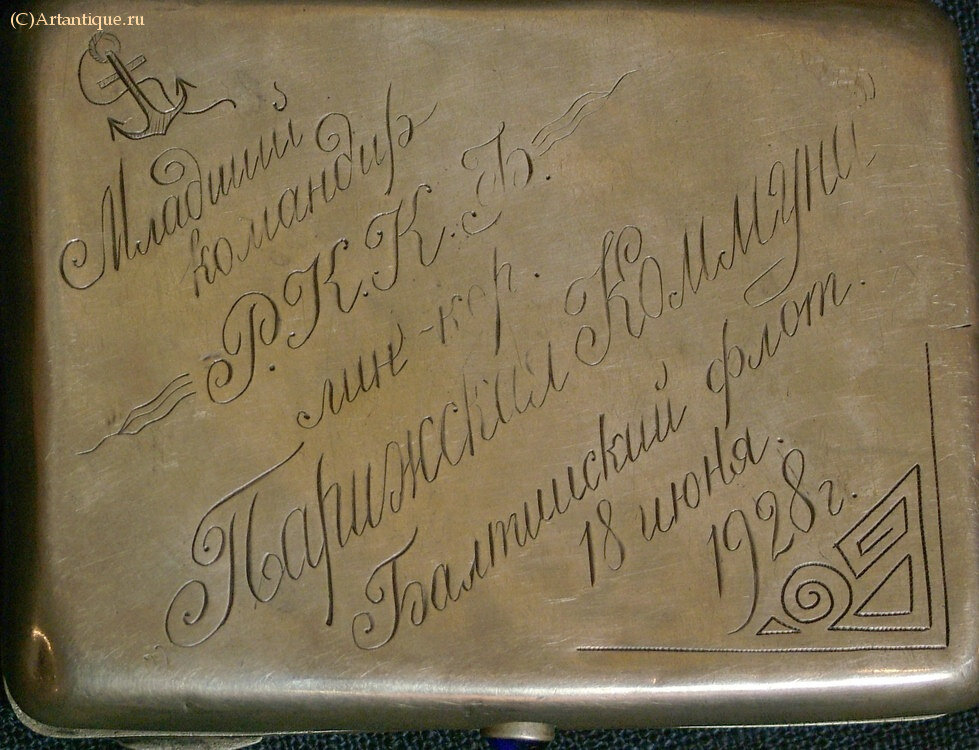 (C)Artantique.ru
Младший
командир
Р.К.К.Ф.
лин-кор.
Парижская Коммуна
Балтийский флот.
18 июня.
1928г.